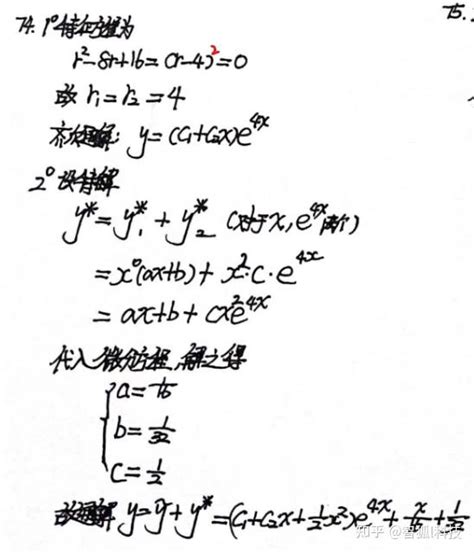 74. 1° 特征方程为
75.
r²-8r+16=(r-4)²=0
故 r₁=r₂=4
齐次通解: y=(C₁+C₂x)e^{4x}
2° 设特解
y*=y₁*+y₂* (对于x, e^{4x}两个)
=x⁰(ax+b)+x²·c·e^{4x}
=ax+b+cx²e^{4x}
代入微分方程,解之得
{a=1/16
b=1/32
c=1/2
故通解 y=ȳ+y*=(C₁+C₂x+1/2x²)e^{4x}+x/16+1/32
知乎 @智狐科技